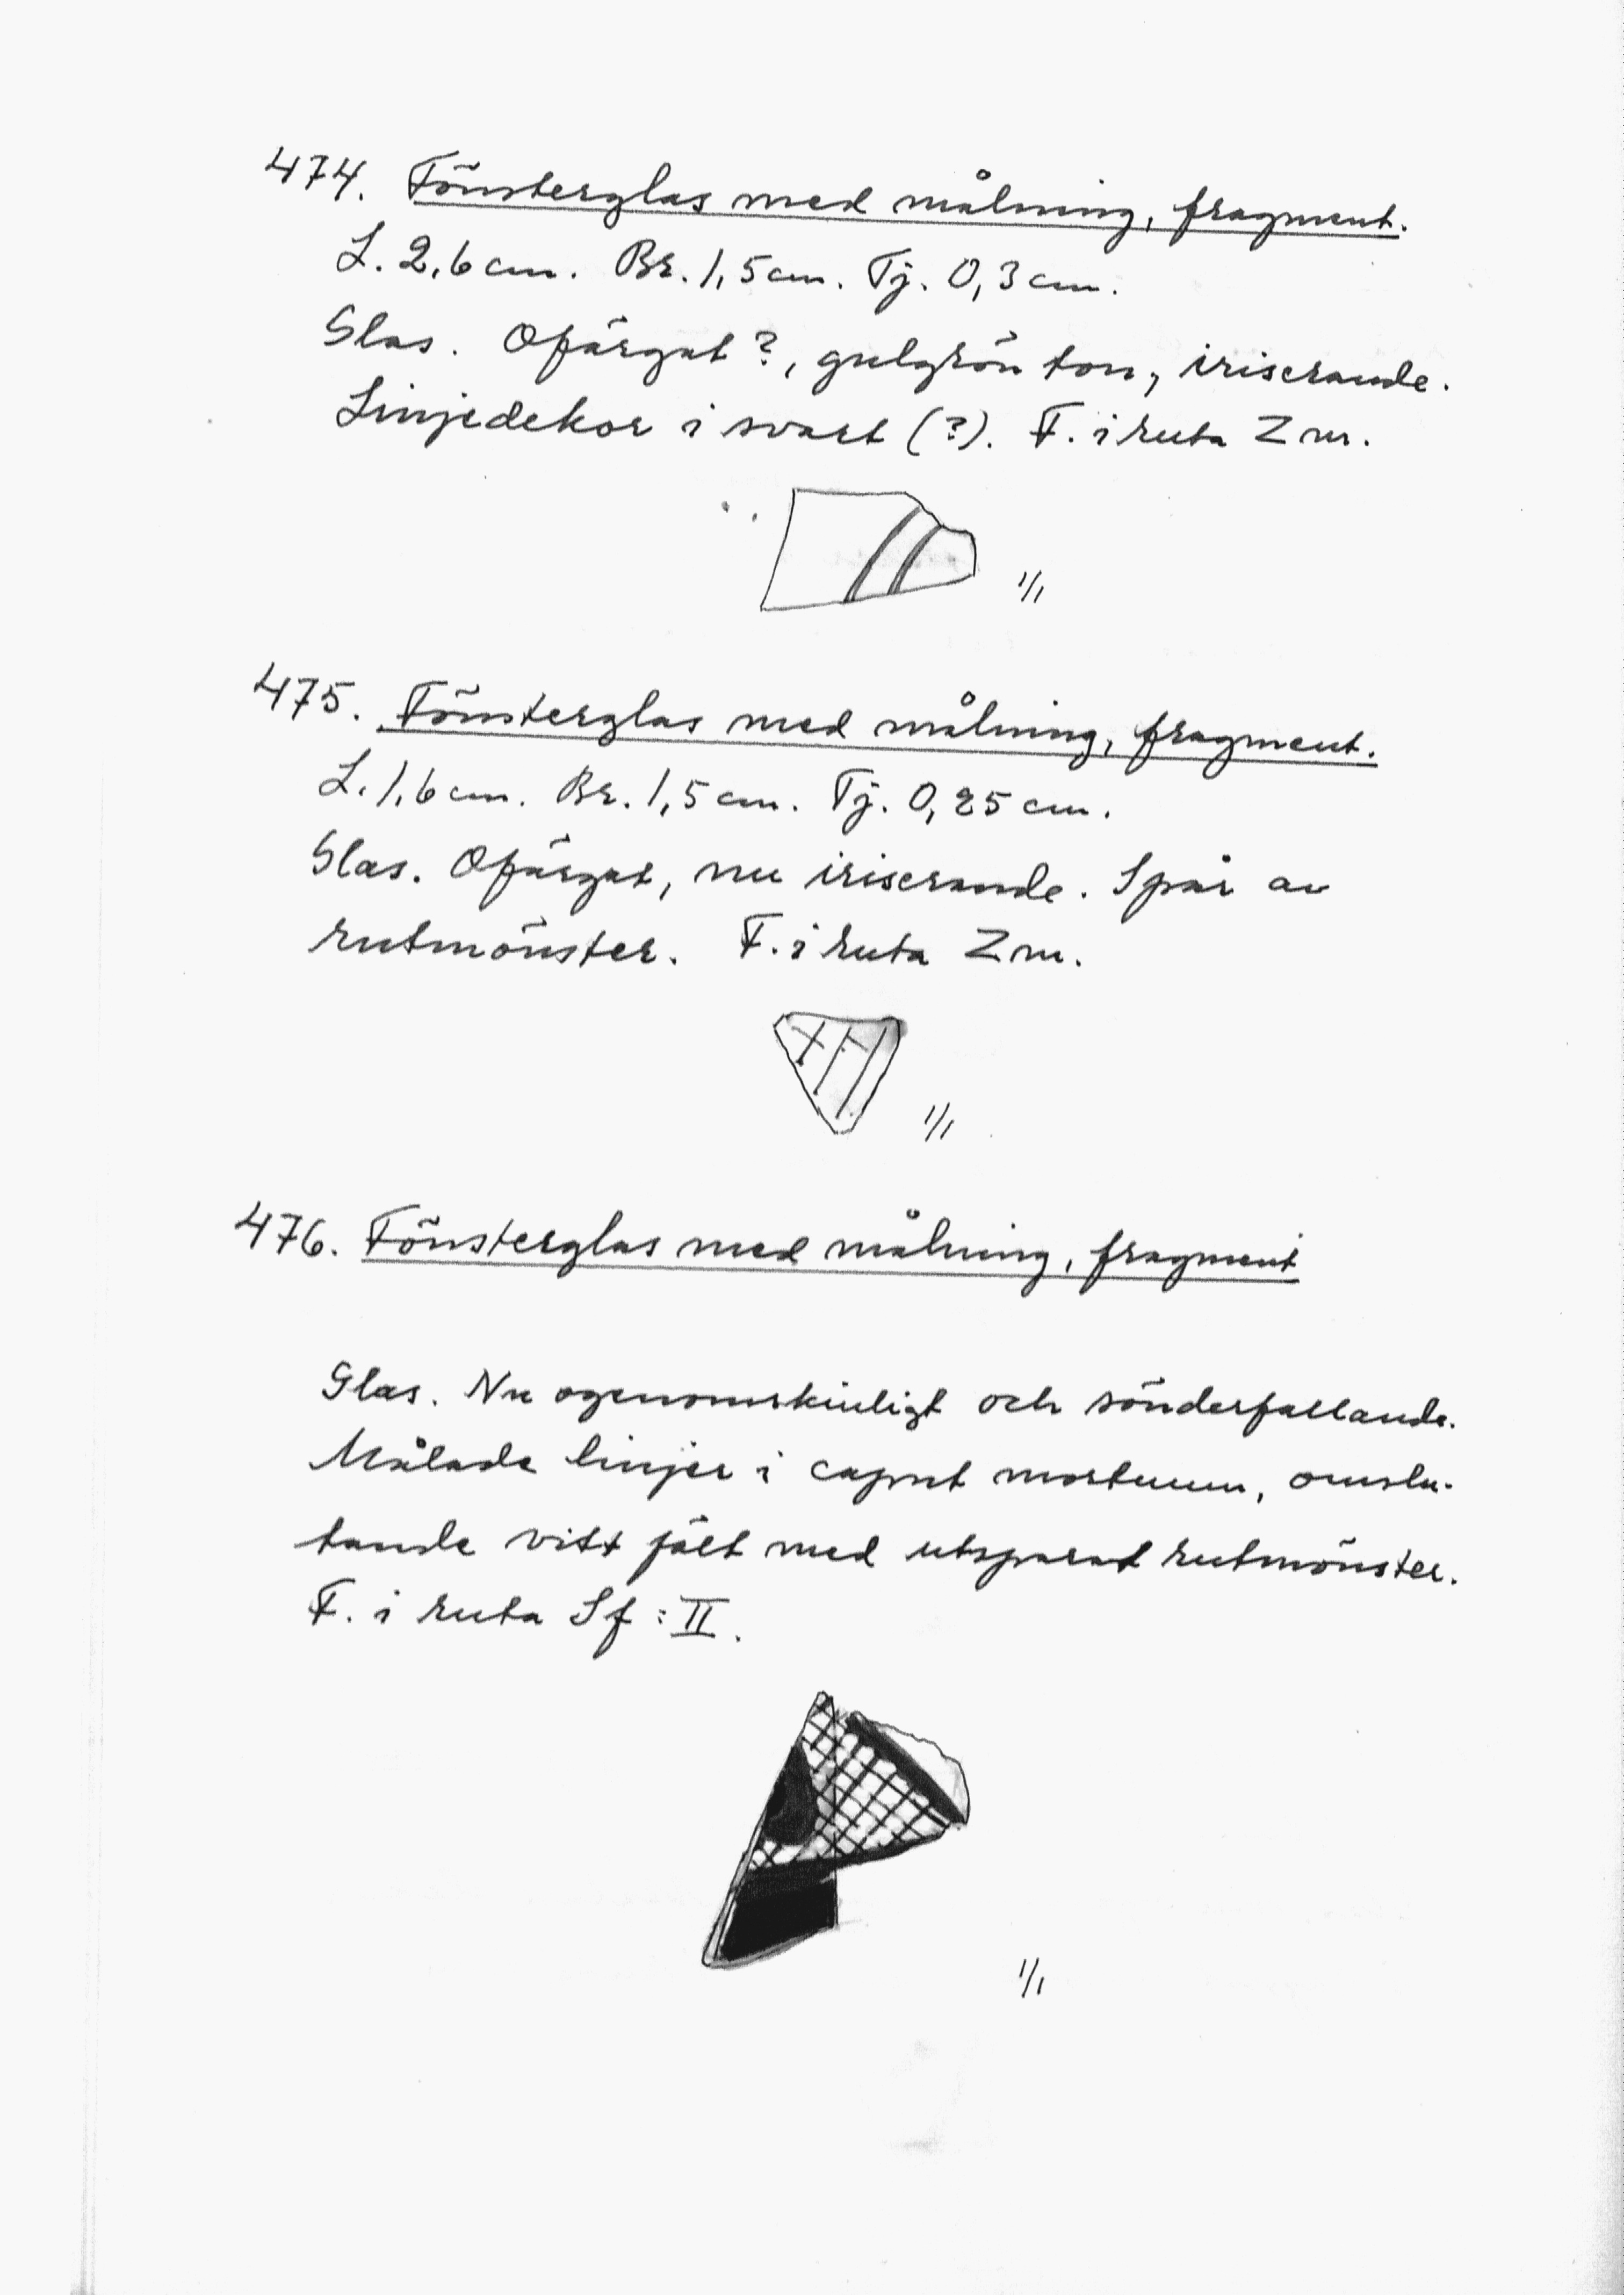 474. Fönsterglas med målning, fragment.
L. 2,6 cm. Br. 1,5 cm. Tj. 0,3 cm.
Glas. Ofärgat?, gulgrön ton, iriserande.
Linjedekor i svart (?). F. i ruta Zm.
1/1
475. Fönsterglas med målning, fragment.
L. 1,6 cm. Br. 1,5 cm. Tj. 0,25 cm.
Glas. Ofärgat, nu iriserande. Spår av
rutmönster. F. i ruta Zm.
1/1
476. Fönsterglas med målning, fragment
Glas. Nu ogenomskinligt och sönderfallande.
Målade linjer i caput mortuum, omslu-
tande vitt fält med utsparat rutmönster.
F. i ruta Sf: II.
1/1